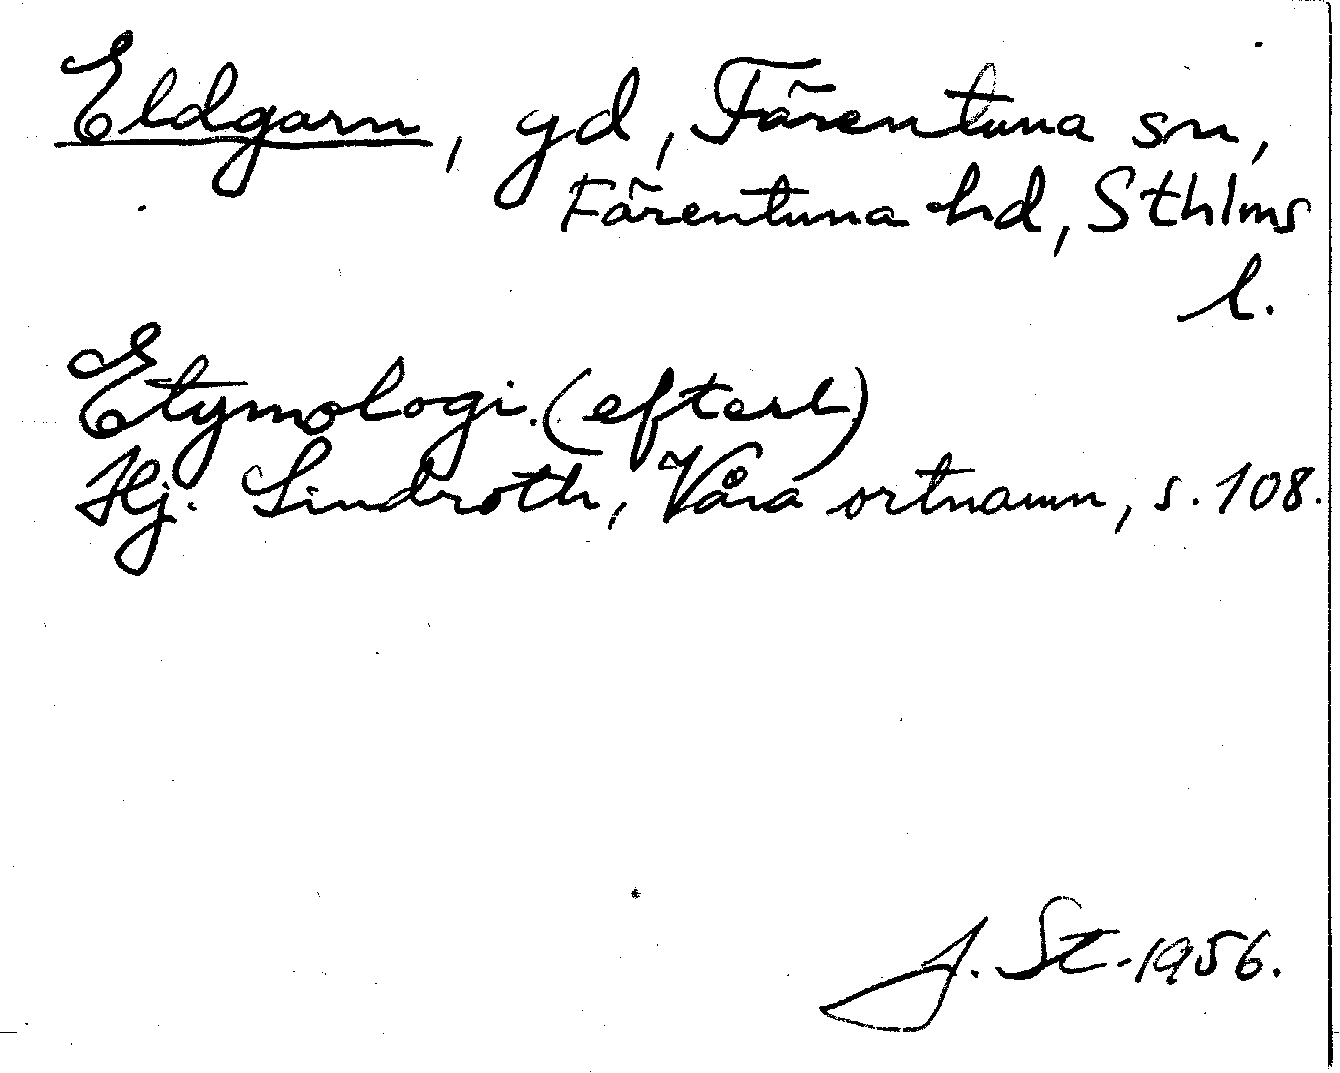 Eldgarn, gd, Färentuna sn,
Färentuna hd, Sthlms
l.
Etymologi. (efterl)
Hj. Lindroth, Våra ortnamn, s. 108.
J. St. 1956.